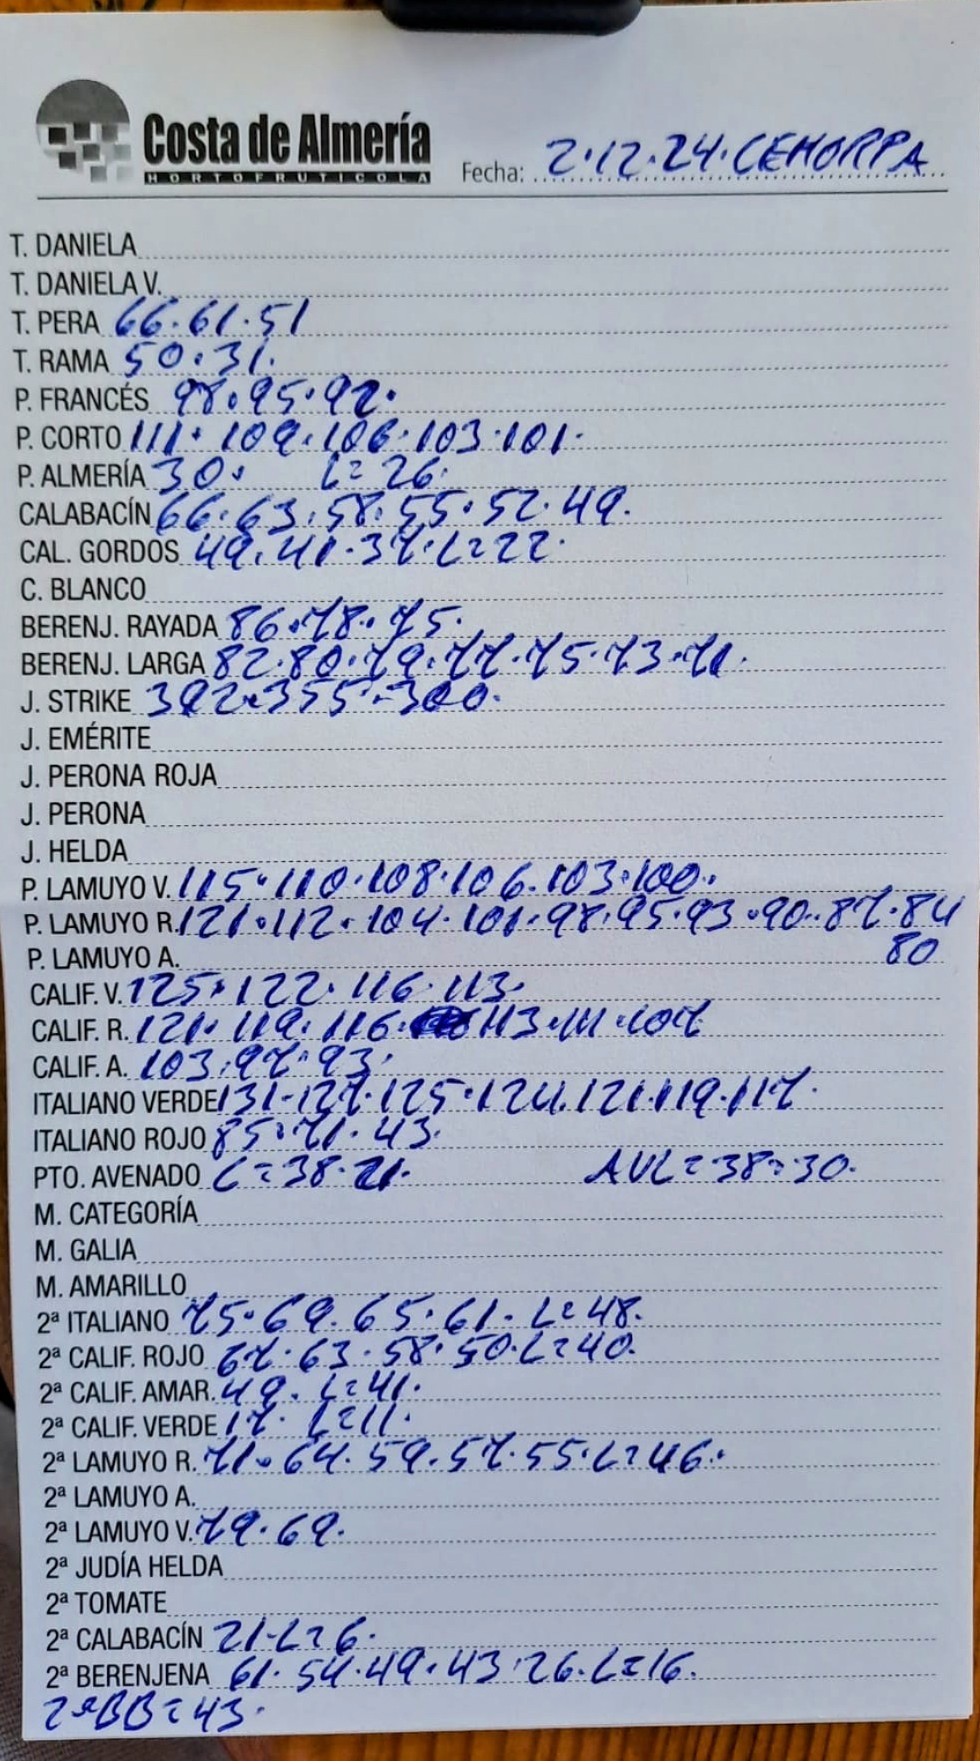 Costa de Almería
HORTOFRUTICOLA
Fecha: 2.12.24.CEHORPA
T. DANIELA
T. DANIELA V.
T. PERA 66.61.51
T. RAMA 50.31.
P. FRANCÉS 98.95.92.
P. CORTO 111. 109.106.103.101.
P. ALMERÍA 30. L=26.
CALABACÍN 66.63.58.55.52.49.
CAL. GORDOS 49.41.37.L=22.
C. BLANCO
BERENJ. RAYADA 86.78.75.
BERENJ. LARGA 82.80.79.77.75.73.71.
J. STRIKE 392.355.300.
J. EMÉRITE
J. PERONA ROJA
J. PERONA
J. HELDA
P. LAMUYO V. 115.110.108.106.103.100.
P. LAMUYO R. 121.112.104.101.98.95.93.90.87.84
P. LAMUYO A. 80
CALIF. V. 125.122.116.113.
CALIF. R. 121.119.116. 113.111.107
CALIF. A. 103.97.93.
ITALIANO VERDE 131-127.125.124.121.119.117.
ITALIANO ROJO 85.71.43.
PTO. AVENADO L=38.21. AVL=38=30.
M. CATEGORÍA
M. GALIA
M. AMARILLO
2ª ITALIANO 75.69.65.61. L=48.
2ª CALIF. ROJO 67.63.58.50.L=40.
2ª CALIF. AMAR. 49. L=41.
2ª CALIF. VERDE 17. L=11.
2ª LAMUYO R. 71.64.59.57.55.L=46.
2ª LAMUYO A.
2ª LAMUYO V. 79.69.
2ª JUDÍA HELDA
2ª TOMATE
2ª CALABACÍN 21-L=6.
2ª BERENJENA 61.54.49.43.26.L=16.
2ªBB=43.